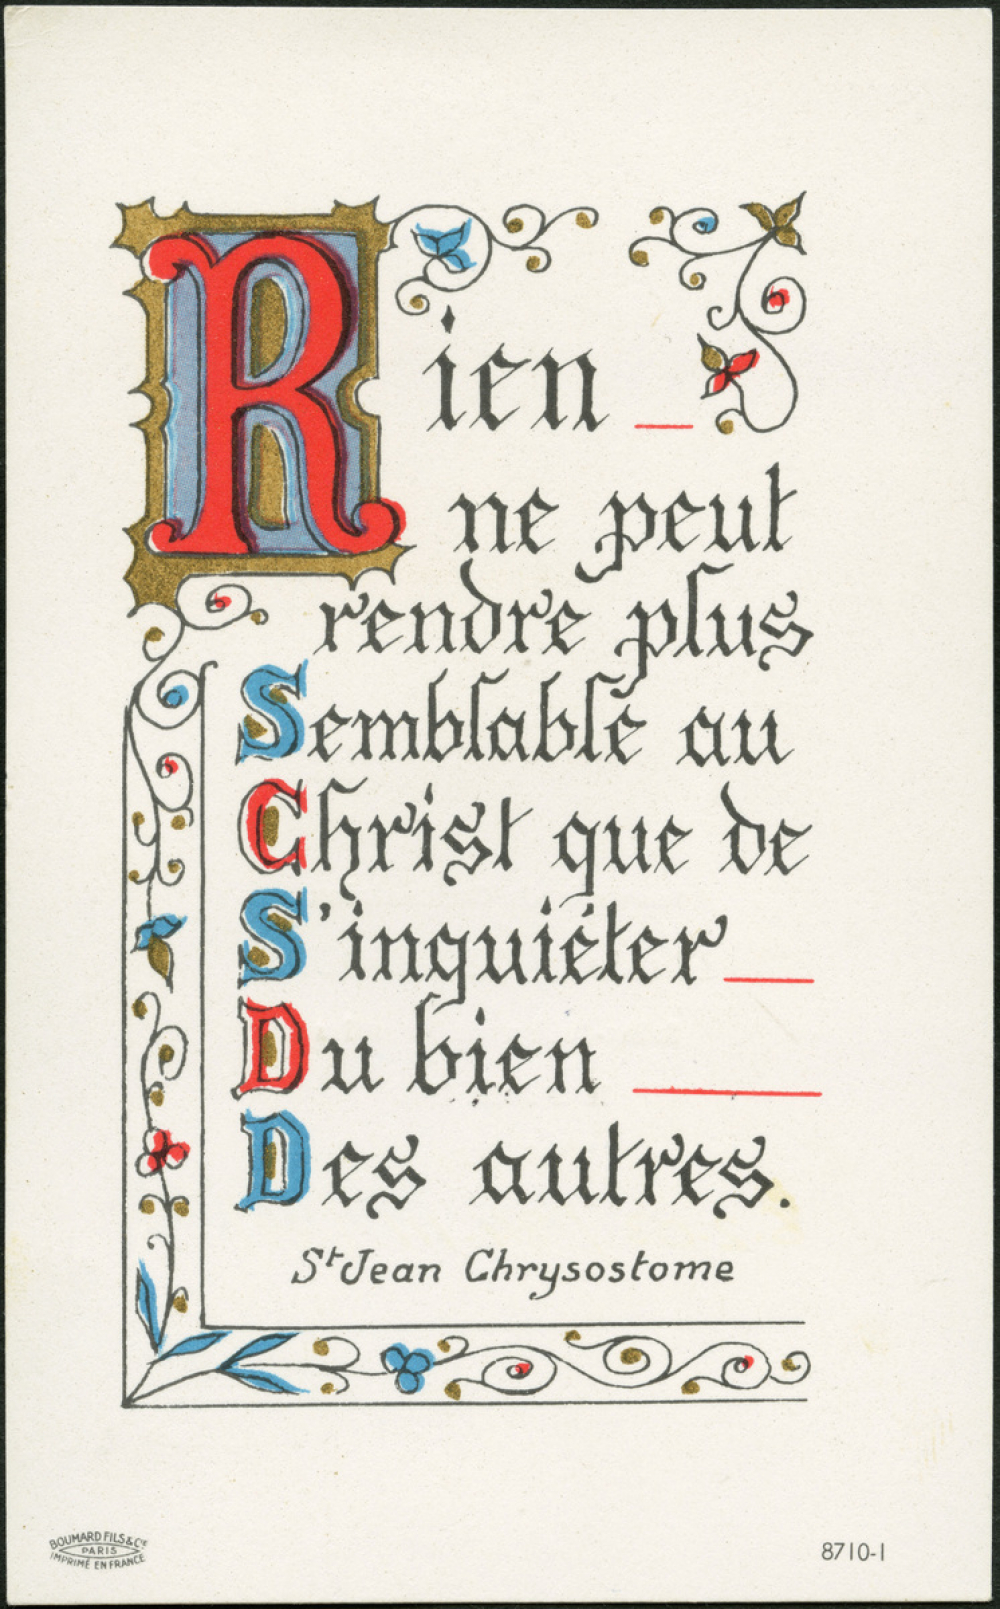 Rien
ne peut
rendre plus
Semblable au
Christ que de
S'inquiéter
Du bien
Des autres.
St Jean Chrysostome
BOUMARD FILS & Cie
PARIS
IMPRIMÉ EN FRANCE
8710-1